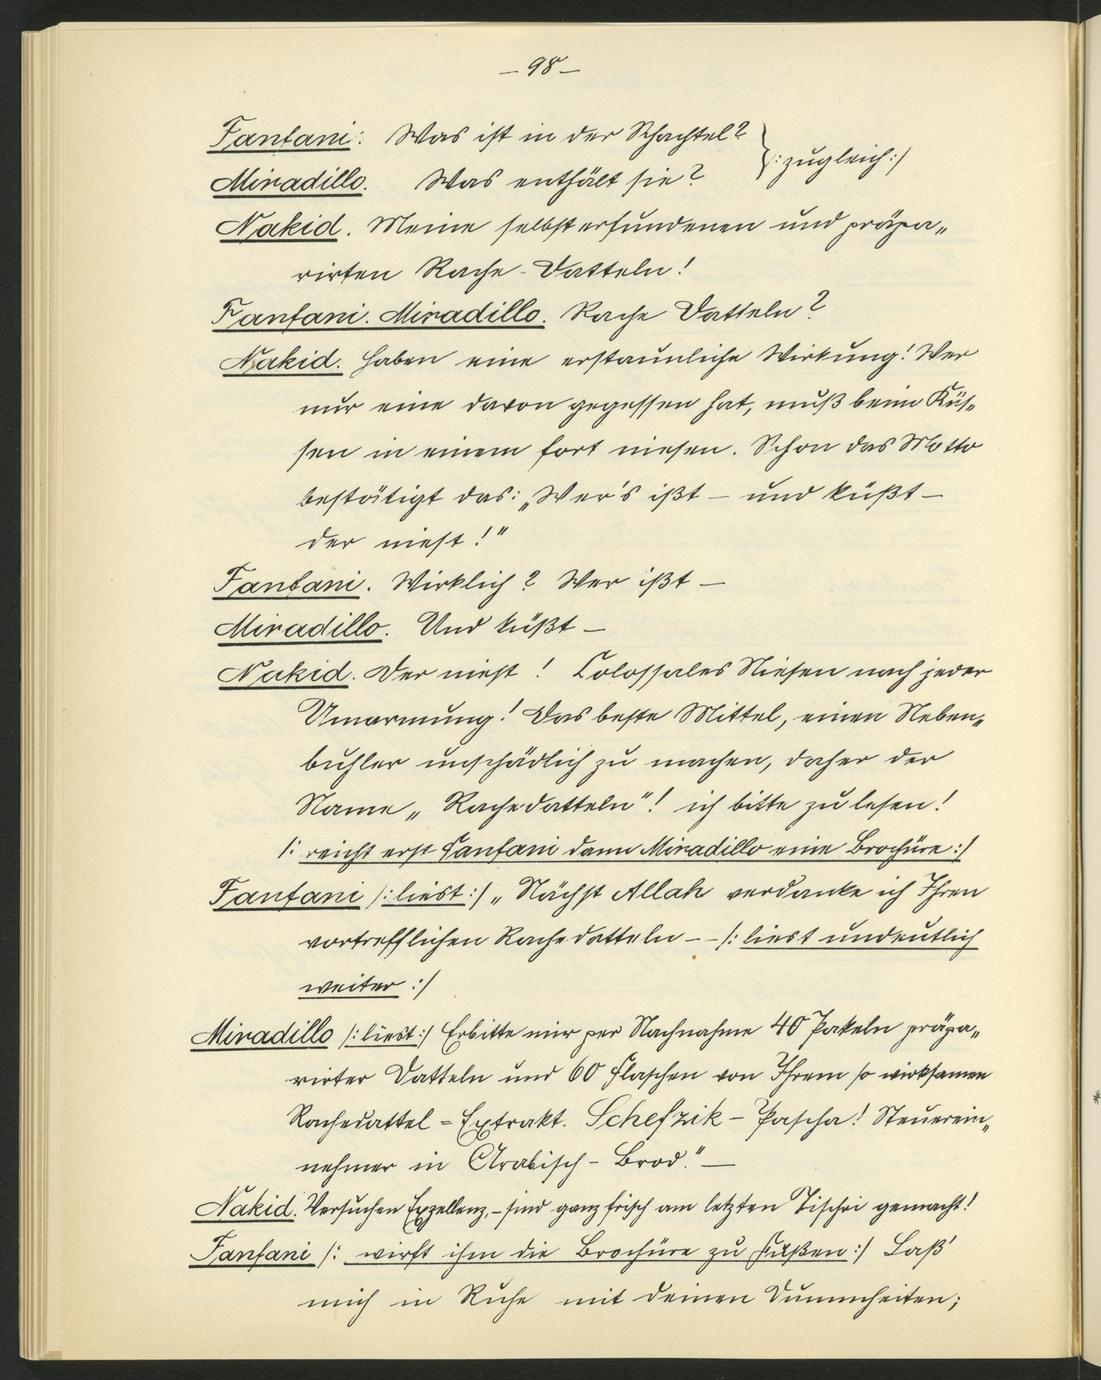 – 98 –
Fanfani: Was ist in der Schachtel? } /:zugleich:/
Miradillo. Was enthält sie?
Nakid. Meine selbsterfundenen und präpa„
rirten Rache-Datteln!
Fanfani. Miradillo. Rache Datteln?
Nakid. Haben eine erstaunliche Wirkung! Wer
nur eine davon gegessen hat, muß beim Küs„
sen in einem fort niesen. Schon das Motto
bestätigt das: „Wer's ißt – und küßt –
der niest!"
Fanfani. Wirklich? Wer ißt –
Miradillo. Und küßt –
Nakid. Der niest! Colossales Niesen nach jeder
Umarmung! Das beste Mittel, einen Neben„
buhler unschädlich zu machen, daher der
Name „Rachedatteln"! ich bitte zu lesen!
/: reicht erst Fanfani dann Miradillo eine Brochüre :/
Fanfani /: liest :/ „Nächst Allah verdanke ich Ihren
vortrefflichen Rachedatteln – – /: liest undeutlich
weiter :/
Miradillo /: liest :/ Erbitte mir per Nachnahme 40 Pakeln präpa„
rirter Datteln und 60 Flaschen von Ihrem so wirksamen
Rachedattel = Extrakt. Schefzik – Pascha! Steuerein„
nehmer in Arabisch – Brod." –
Nakid. Versuchen Exzellenz, – sind ganz frisch am letzten Tischri gemacht!
Fanfani /: wirft ihm die Brochüre zu Füßen :/ Laß'
mich in Ruhe mit deinen Dummheiten;